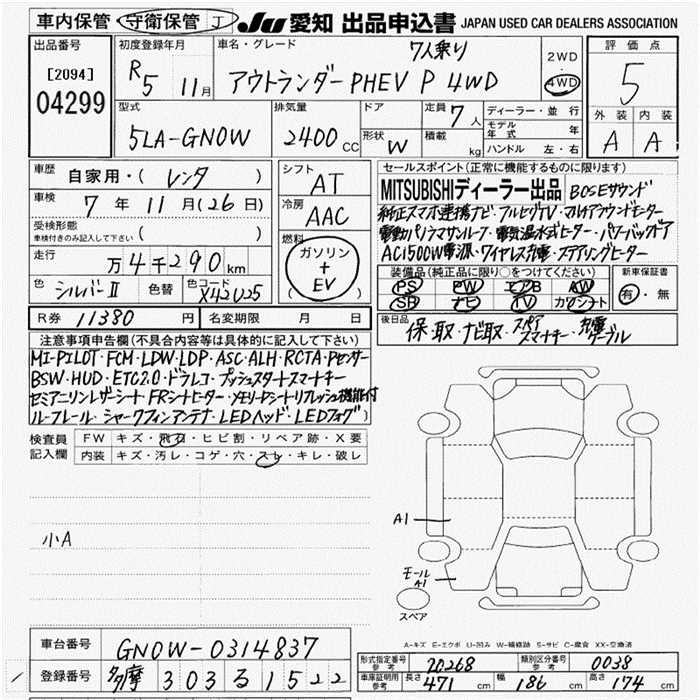 車内保管 守衛保管 J JU 愛知 出品申込書 JAPAN USED CAR DEALERS ASSOCIATION
出品番号 初度登録年月 車名・グレード 7人乗り 2WD 評価点
[2094] R5 11月 アウトランダーPHEV P 4WD 4WD 5
04299 型式 排気量 ドア 定員 7人 ディーラー・並行 外装 内装
5LA-GN0W 2400cc 形状 W 積載 kg モデル年式 年 A A
ハンドル 左・右
車歴 自家用・(レンタ) シフト AT セールスポイント(正常に機能するものに限ります)
車検 7年11月(26日) 冷房 AAC MITSUBISHIディーラー出品 BOSEサウンド
受検形態 純正スマホ連携ナビ・フルセグTV・マルチアラウンドモニター
車検付きのみ記入して下さい ( ) 燃料 電動パノラマサンルーフ・電気温水式ヒーター・パワーバックドア
走行 万4千290km ガソリン+EV AC1500W電源・ワイヤレス充電・ステアリングヒーター
色 シルバーII 色替 色コード X42U25 装備品(純正品に限り○をつけてください) 新車保証書
PS PW エアB AW 有・無
SR ナビ TV カワシート
R券 11380円 名変期限 月 日 後日品 保・取・ナビ取・スペアスマートキー・充電ケーブル
注意事項申告欄(不具合内容等は具体的に記入して下さい)
MI-PILOT・FCM・LDW・LDP・ASC・ALH・RCTA・Pセンサー
BSW・HUD・ETC2.0・ドラレコ・プッシュスタートスマートキー
セミアニリンレザーシート・FRシートヒーター・メモリーPシートリフレッシュ機能付
ルーフレール・シャークフィンアンテナ・LEDヘッド・LEDフォグ
検査員 FW キズ・飛石・ヒビ割・リペア跡・X要
記入欄 内装 キズ・汚レ・コゲ・穴・スレ・キレ・破レ
小A
A1
モールA1
スペア
A-キズ E-エクボ U-凹み W-補修跡 S-サビ C-腐食 XX-交換済
車台番号 GN0W-0314837
登録番号 多摩 303る1522
形式指定番号 参考 20268 類別区分番号 参考 0038
車庫証明用 参考 長さ 471cm 幅 186cm 高さ 174cm